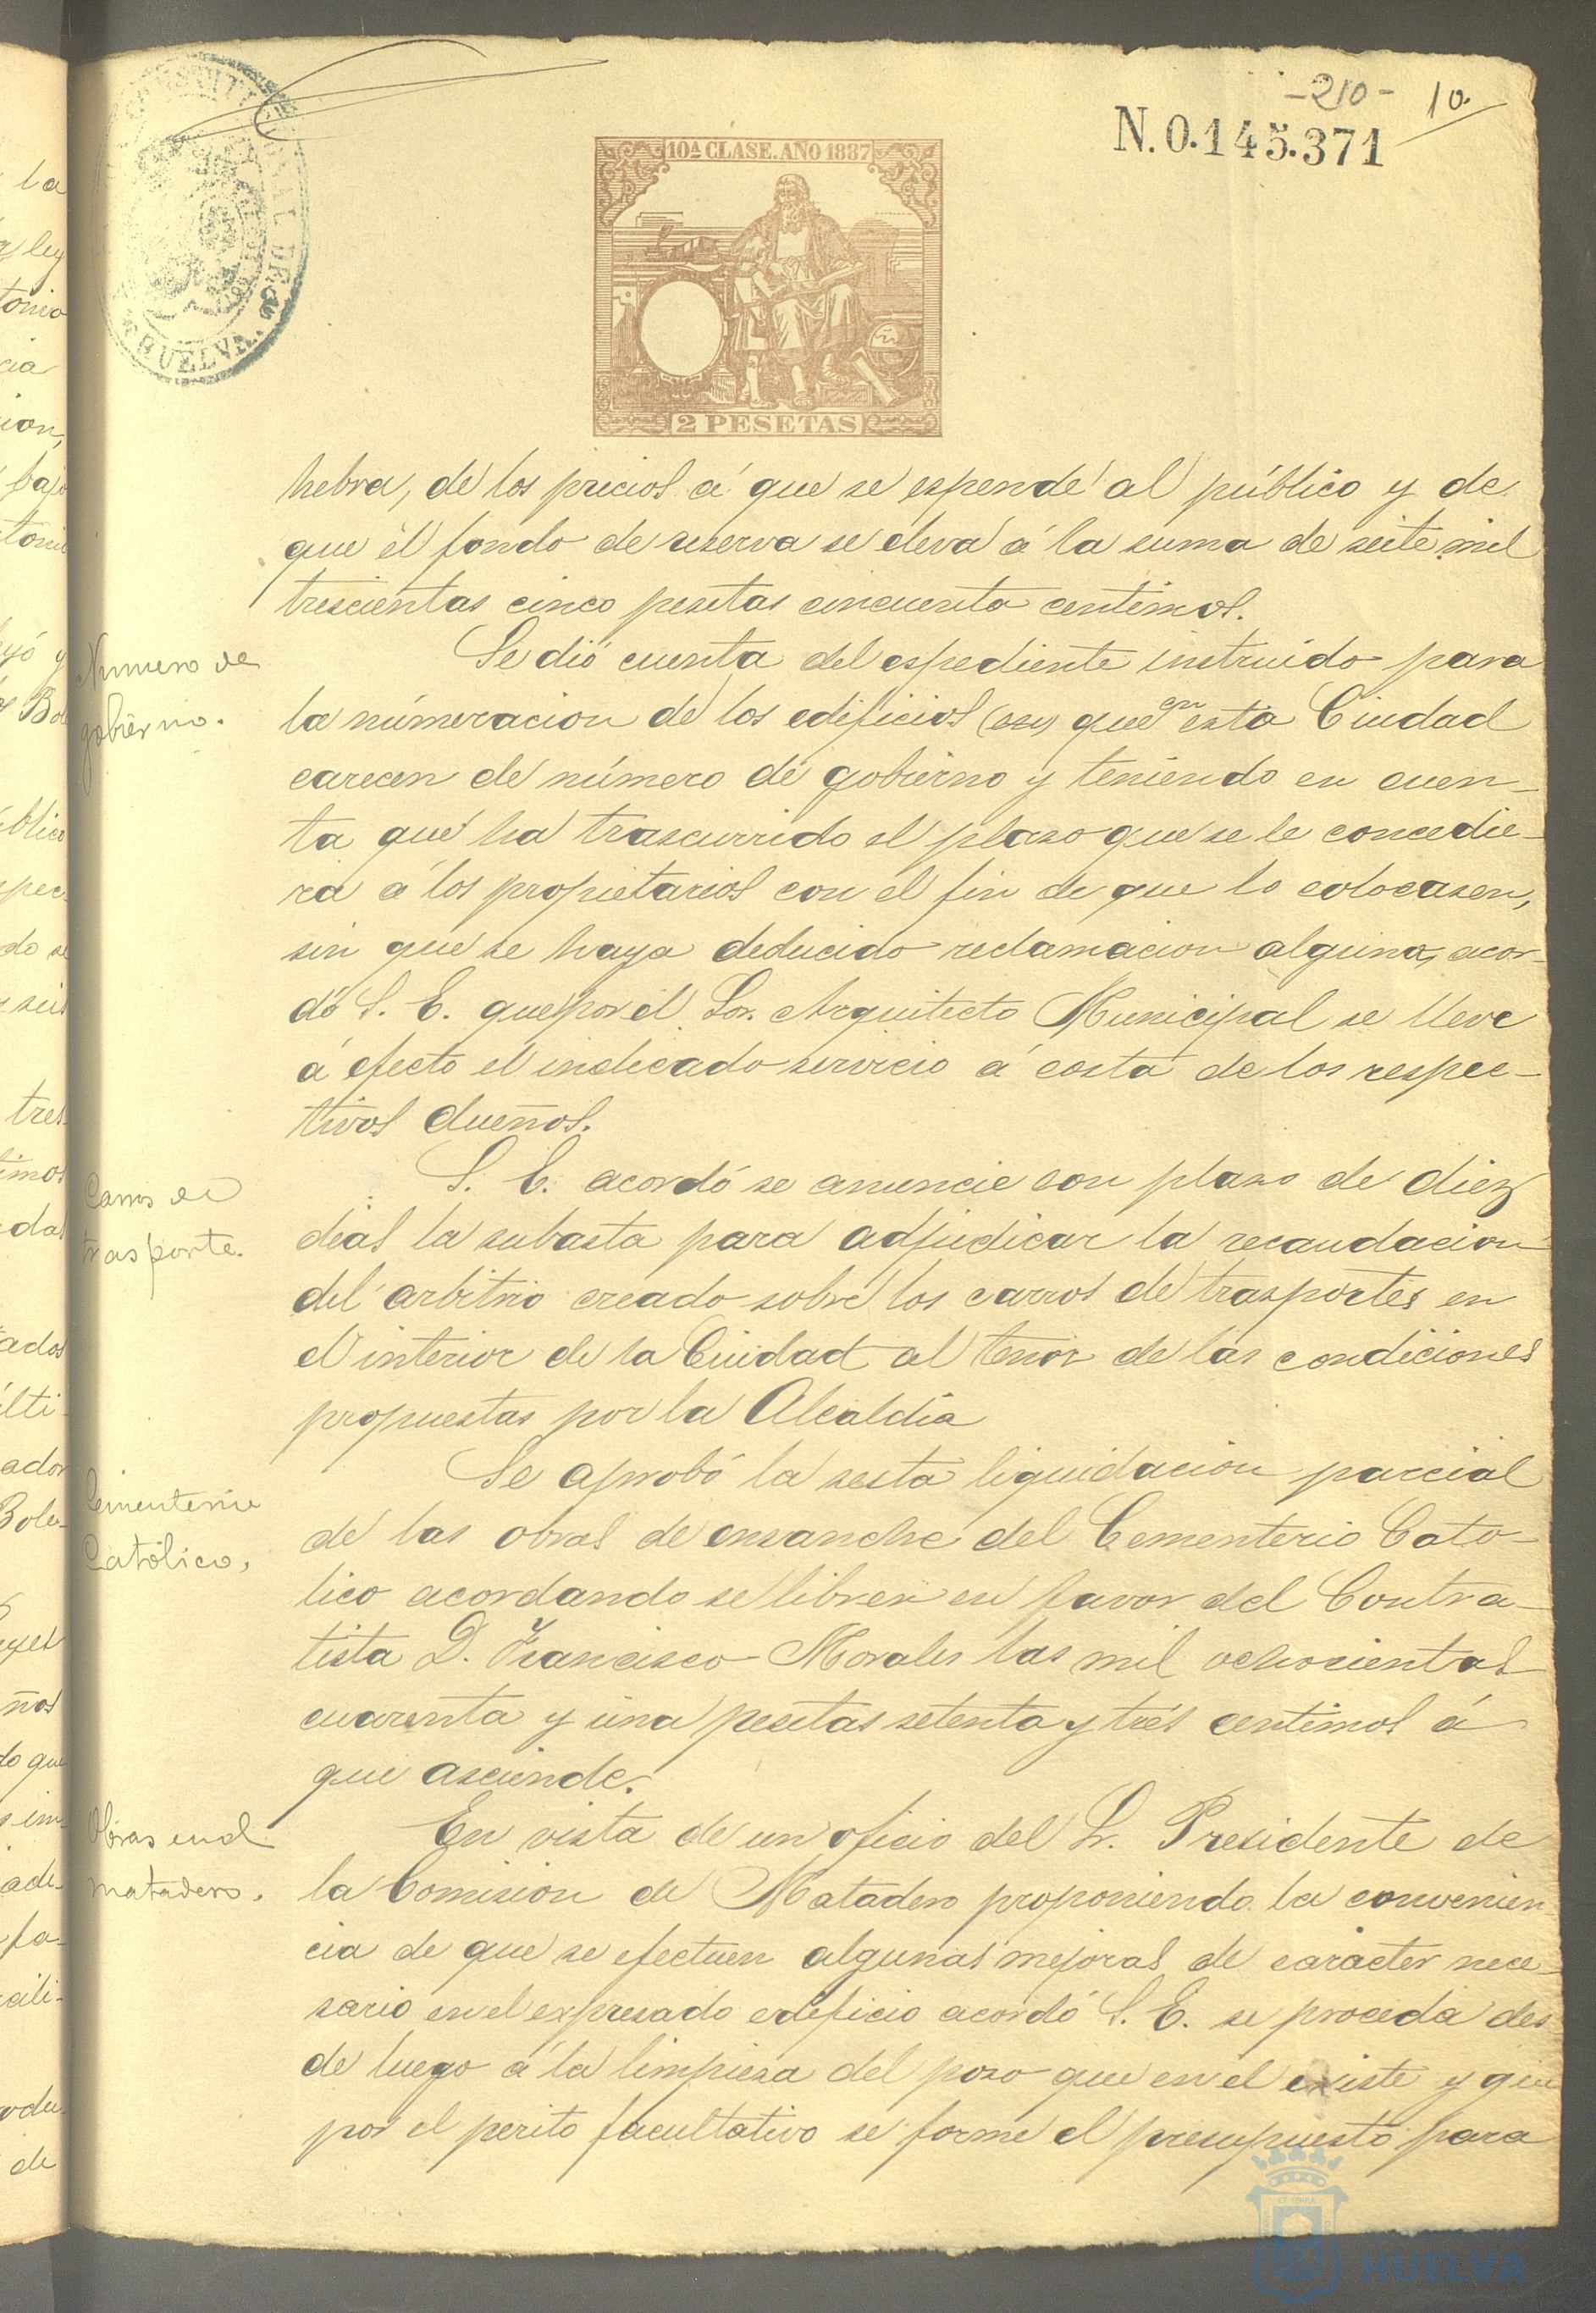 -210- 10.
N.0.145.371
CONSTITUCIONAL DE
HUELVA.
10ª CLASE. AÑO 1887
2 PESETAS
hebra, de los precios á que se espende al público y de
que el fondo de reserva se eleva á la suma de siete mil
trescientas cinco pesetas cincuenta centimos.
Numero de
gobierno.
Se dió cuenta del espediente instruido para
la númeracion de los edificios que en esta Ciudad
carecen de número de gobierno y teniendo en cuen-
ta que ha trascurrido el plaso que se le concedie-
ra á los propietarios con el fin de que lo colocasen,
sin que se haya deducido reclamacion alguna, acor-
dó S. E. que por el Sor. Arquitecto Municipal se lleve
á efecto el indicado servicio á costa de los respec-
tivos dueños.
Carros de
trasporte.
S. E. acordó se anuncie con plaso de diez
dias la subasta para adjudicar la recaudacion
del arbitrio creado sobre los carros de trasportes en
el interior de la Ciudad al tenor de las condiciones
propuestas por la Alcaldía
Cementerio
Católico.
Se aprobó la sesta liquidacion parcial
de las obras de ensanche del Cementerio Cato-
lico acordando se libren en favor del Contra-
tista D. Francisco Morales las mil ochocientas
cuarenta y una pesetas setenta y tres centimos á
que asciende.
Obras en el
matadero.
En vista de un oficio del Sr. Presidente de
la Comision de Matadero proponiendo la convenien
cia de que se efectuen algunas mejoras de carácter nece-
sario en el expresado edificio acordó S. E. se proceda des
de luego á la limpiesa del poso que en el existe y que
por el perito facultativo se forme el presupuesto para
HUELVA